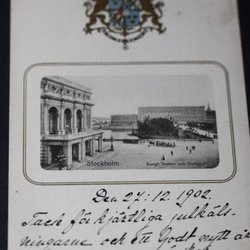 Stockholm
Kungl. Teatern och Slottet
Den 27/12. 1902.
Tack för hjärtliga julhäls-
ningarne och Ett Godt nytt år